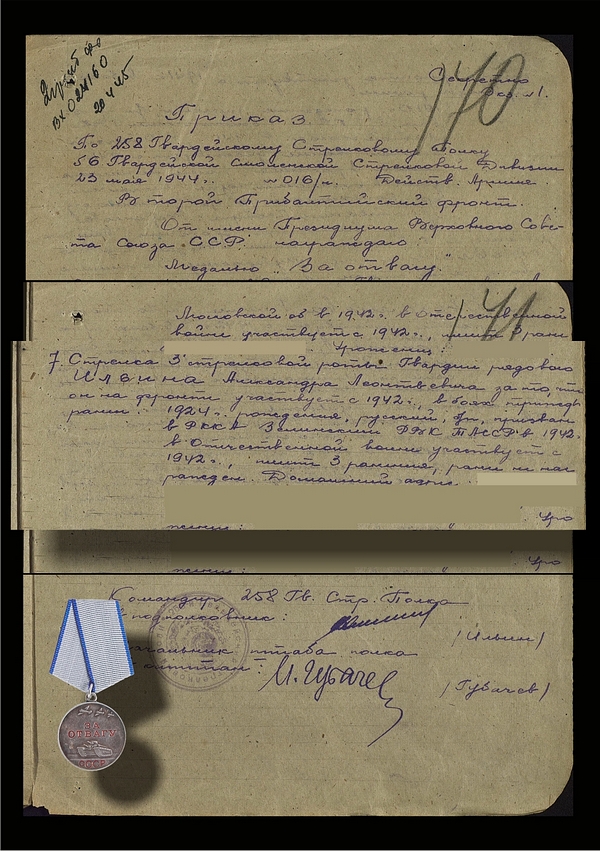 Вх 024160
20 4 45
Секретно
Экз. №1.
140
Приказ
По 258 Гвардейскому Стрелковому Полку
56 Гвардейской Смоленской Стрелковой Дивизии
23 мая 1944г. №016/н. Действ. Армия.
Второй Прибалтийский фронт.
От имени Президиума Верховного Сове-
та Союза ССР награждаю:
Медалью "За отвагу"
Московской об в 1942г. в Отечественной
войне участвует с 1942г., имеет 3 ране
141
Уроженец:
7. Стрелка 3 стрелковой роты Гвардии рядового
Ильина Александра Леонтьевича за то, что
он на фронте участвует с 1942г., в боях трижды
ранен. 1924г. рождения, русский, б/п, призван
в РККА РВК ТАССР в 1942г.
в Отечественной войне участвует с
1942г., имеет 3 ранения, ранее не наг
ражден. Домашний адрес:
Уро
жение:
Уро
жение:
Командир 258 Гв. Стр. Полка
подполковник:
/Ильин/
Начальник штаба полка
капитан: И. Губачев
/Губачев/
ЗА
ОТВАГУ
СССР